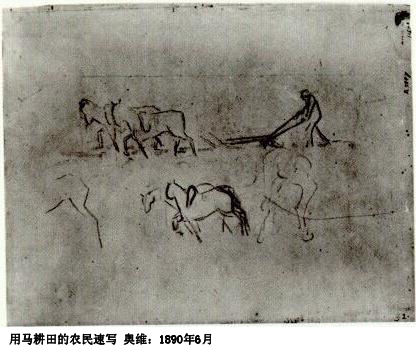 用马耕田的农民速写 奥维：1890年6月